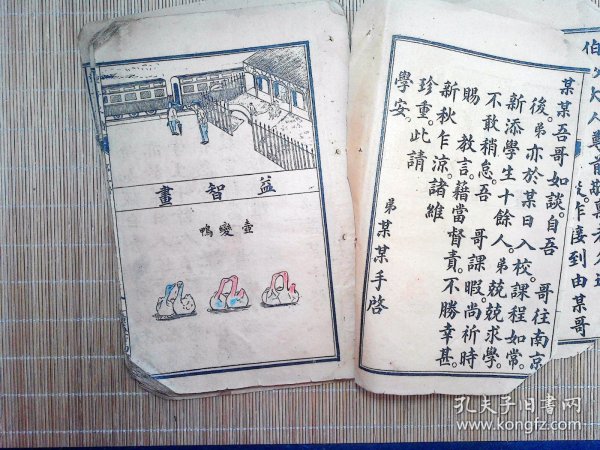 某某吾哥如談。自吾 哥往南京
後。弟亦於某日入校。課程如常。
新添學生十餘人。弟兢兢求學。
不敢稍怠。吾 哥課暇。尚祈時
賜 教言。藉當督責。不勝幸甚。
新秋乍涼。諸維
珍重。此請
學安。
弟某某手啓
益智畫
壺變
孔夫子旧书网
www.kongfz.com